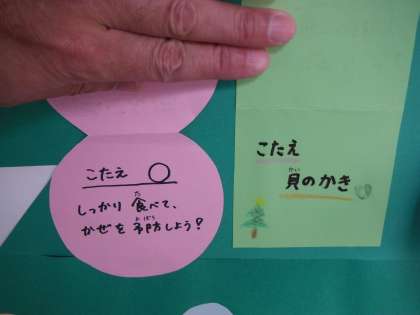 こたえ ○
しっかり 食べて、
かぜを 予防しよう?
こたえ
貝のかき